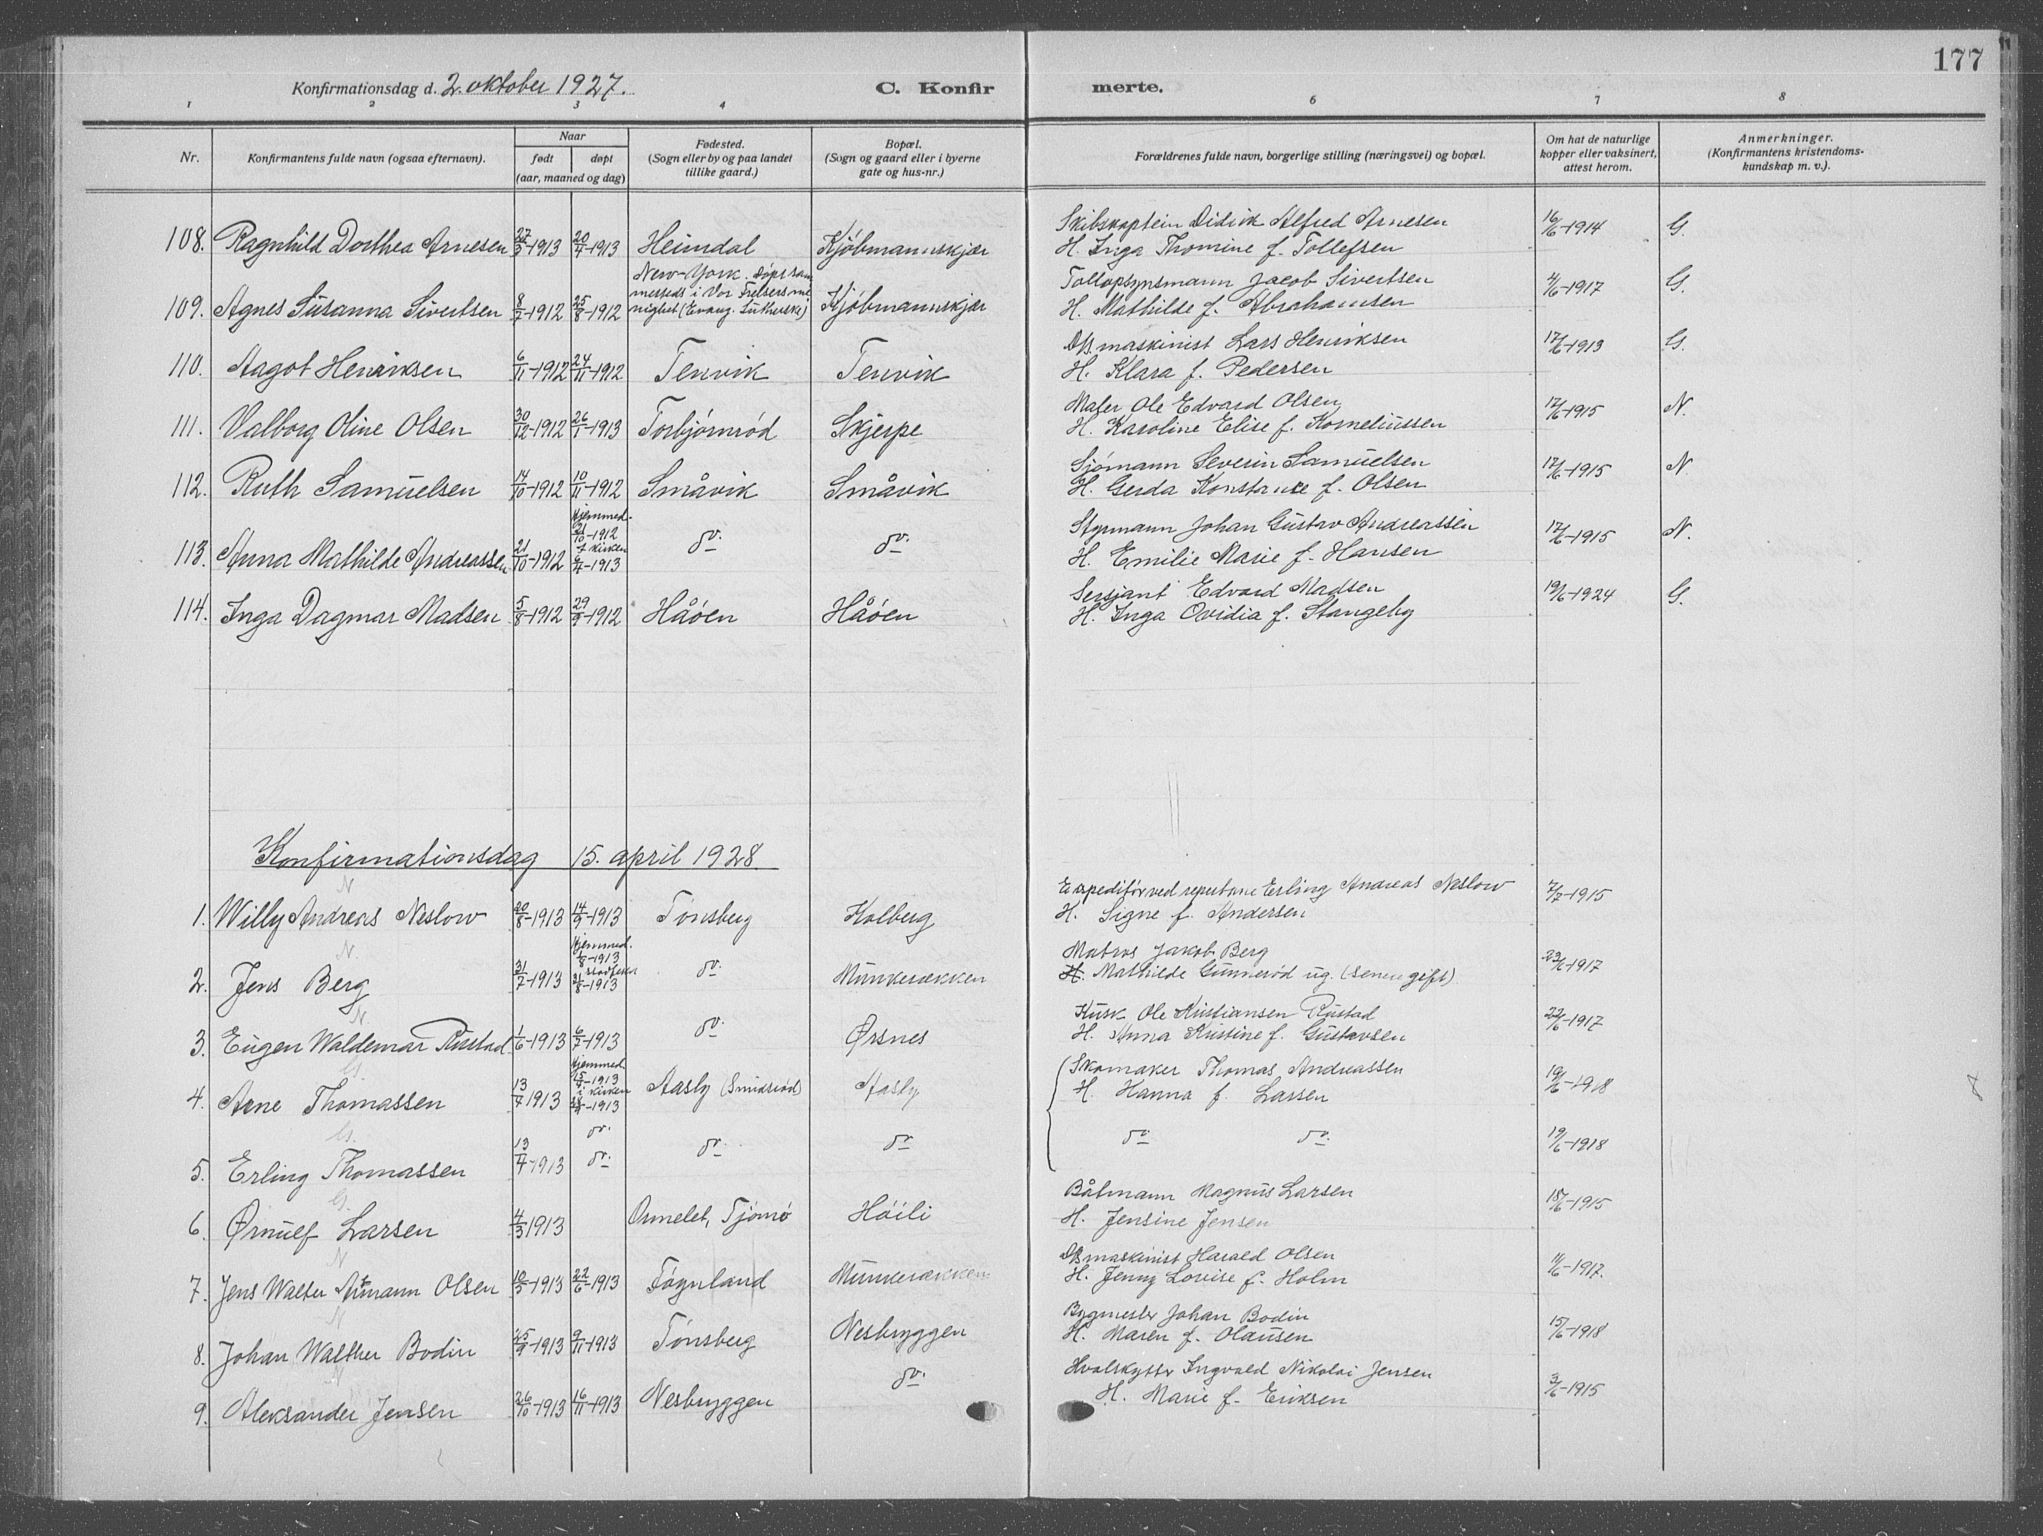 177
Konfirmationsdag d. 2. oktober 1927.
C. Konfirmerte.
1 2 3 4 6 7 8
Nr. Konfirmantens fulde navn (ogsaa efternavn). Naar født døpt (aar, maaned og dag) Fødested. (Sogn eller by og paa landet tillike gaard.) Bopæl. (Sogn og gaard eller i byerne gate og hus-nr.) Forældrenes fulde navn, borgerlige stilling (næringsvei) og bopæl. Om hat de naturlige kopper eller vaksinert, attest herom. Anmerkninger. (Konfirmantens kristendomskundskap m. v.).
108. Ragnhild Dorthea Arnesen 27/3-1913 20/7-1913 Heimdal Kjøbmannskjær Skibskaptein Didrik Alfred Arnesen 16/6-1914 G.
H. Inga Thomine f. Tollefsen
109. Agnes Susanna Sivertsen 8/7-1912 25/8-1912 New-York. Døpt sammesteds i Vor Frelsers menighet (Evang. Lutherske) Kjøbmannskjær Tollopsynsmann Jacob Sivertsen 4/6-1917 G.
H. Mathilde f. Abrahamsen
110. Aagot Henriksen 6/11-1912 24/11-1912 Tenvik Tenvik D/S maskinist Lars Henriksen 17/6-1913 G.
H. Klara f. Pedersen
111. Valborg Oline Olsen 30/12-1912 26/1-1913 Torbjørnrød Skjerpe Maler Ole Edvard Olsen 17/6-1915 N.
H. Karoline Elise f. Korneliussen
112. Ruth Samuelsen 14/10-1912 10/11-1912 Småvik Småvik Sjømann Severin Samuelsen 17/6-1915 N
H. Gerda Konstance f. Olsen
113. Anna Mathilde Andreassen 21/10-1912 Hjemmed. 21/10-1912 i kirken 6/4-1913 do. do. Styrmann Johan Gustav Andreassen 17/6-1915 N.
H. Emilie Marie f. Hansen
114. Inga Dagmar Madsen 5/8-1912 29/9-1912 Håøen Håøen Sersjant Edvard Madsen 19/6-1924 G.
H. Inga Ovidia f. Stangeby
Konfirmationsdag 15. april 1928.
N
1. Willy Andreas Neslow 20/8-1913 14/9-1913 Tønsberg Holberg Erling Andreas Neslow 7/7-1915
H. Signe f. Andersen
N.
2. Jens Berg 31/7-1913 Hjemmed. 1/8-1913 31/8-1913 do. Munkerækken Matros Jakob Berg 23/6-1917
H. Mathilde Gunnerød ug. (senere gift)
N
3. Eugen Waldemar Rustad 1/6-1913 6/7-1913 do. Ørsnes Kusk Ole Kristiansen Rustad 22/6-1917
H. Anna Kristine f. Gustavsen
G.
4. Arne Thomassen 13/7 1913 Hjemmed. 15/7-1913 i kirken -1913 Aasly (Smidsrød) Aasly Skomaker Thomas Andreassen 19/6-1918
H. Hanna f. Larsen
G.
5. Erling Thomassen 13/7-1913 do. do. do. do do. do. 19/6-1918
G.
6. Ørnulf Larsen 4/3 1913 Ormelet, Tjømø Høili Båtmann Magnus Larsen 18/6-1915
H. Jensine Jensen
N
7. Jens Walter Armann Olsen 10/5-1913 22/6-1913 Føynland Munkerækken D/S maskinist Harald Olsen 11/6-1917.
H. Jenny Lovise f. Holm
N
8. Johan Walther Bodin 25/9-1913 9/11-1913 Tønsberg Nesbryggen Bygmester Johan Bodin 15/6-1918
H. Maren f. Olausen
N
9. Aleksander Jensen 26/10-1913 16/11-1913 Nesbryggen do. Hvalskytter Ingvald Nikolai Jensen 3/6-1915
H. Marie f. Eriksen